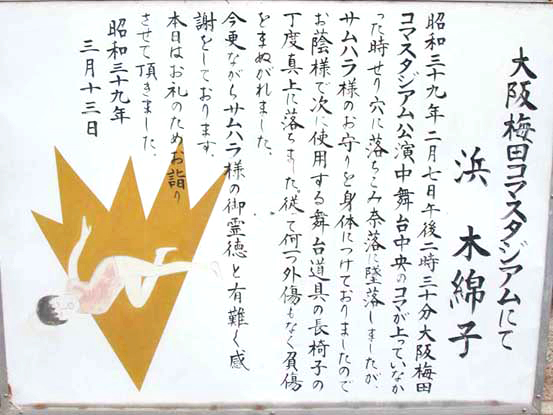 大阪梅田コマスタジアムにて
浜 木綿子
昭和三十九年二月七日午後二時三十分大阪梅田
コマスタジアム公演中舞台中央のコマが上っていなか
った時せり穴に落ちこみ奈落に墜落しましたが、
サムハラ様のお守りを身体につけておりましたので
お蔭様で次に使用する舞台道具の長椅子の
丁度真上に落ちました。従て何つ外傷もなく負傷
をまぬがれました。
今更ながらサムハラ様の御霊徳と有難く感
謝をしております。
本日はお礼のためお詣り
させて頂きました。
昭和三十九年
三月十三日